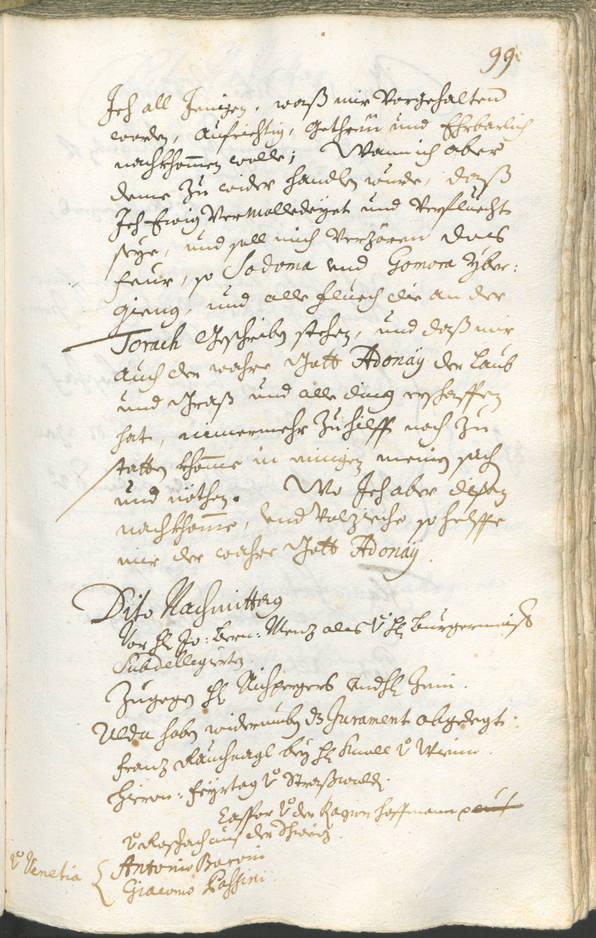 99.
Ich all Jenigen, waß mir Vorgehalten
worden, aufrichtig, getreü und Ehrbarlich
nachkhommen wolle; Wann ich aber
deme zu wider handlen wurde, daß
Ich Ewig Vermalledeyet und Verfluecht
seye, und soll mich Verzören das
feur, so Sodoma und Gomora yber:
gieng, und alle fluech die an der
Torach Geschriben stehen, und daß mir
auch der wahre Gott Adonäy der Laub
und Graß und alle ding erschaffen
hat, nimmermehr zu hilff noch zu
statten khomme in einigen meinen sachen
und nöthen. Wo Ich aber disen
nachkhomme, und Volziehe so helffe
mir der wahre Gott Adonäy.
Dito Nachmittag
Vor H Jo: Menz als H Burgermaist
Subdellegirten.
Zugegen H und H
haben widerumben dz Jurament abgelegt:
Franz bey H
Hieron: Feyrtag V
Caspar V der Hoffmann
V aus der Schweiz.
V Venetia { Antonio
Giacomo